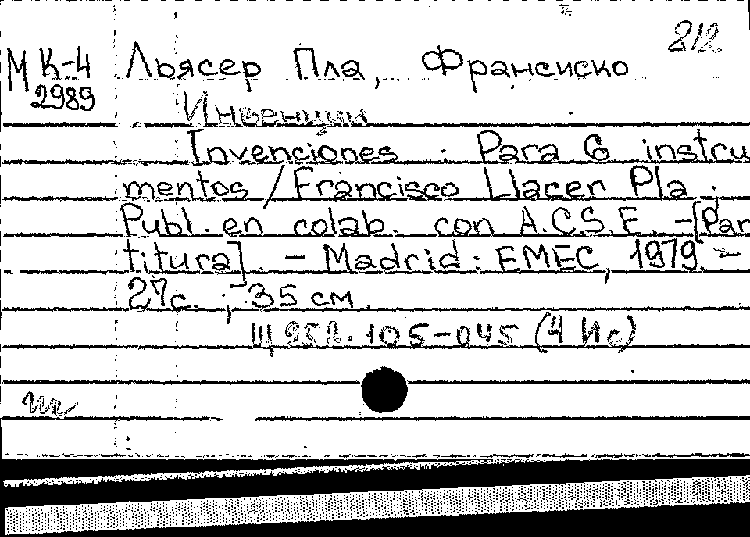 812
М К-4 Льясер Пла, Франсиско
2989
Инвенции
Invenciones : Para 6 instru
mentos / Francisco Llacer Pla ;
Publ. en colab. con A.C.S.E. -[Par
titura]. - Madrid : EMEC, 1979. -
27с. ; 35 см.
Щ 952.105-045 (4 Ис)